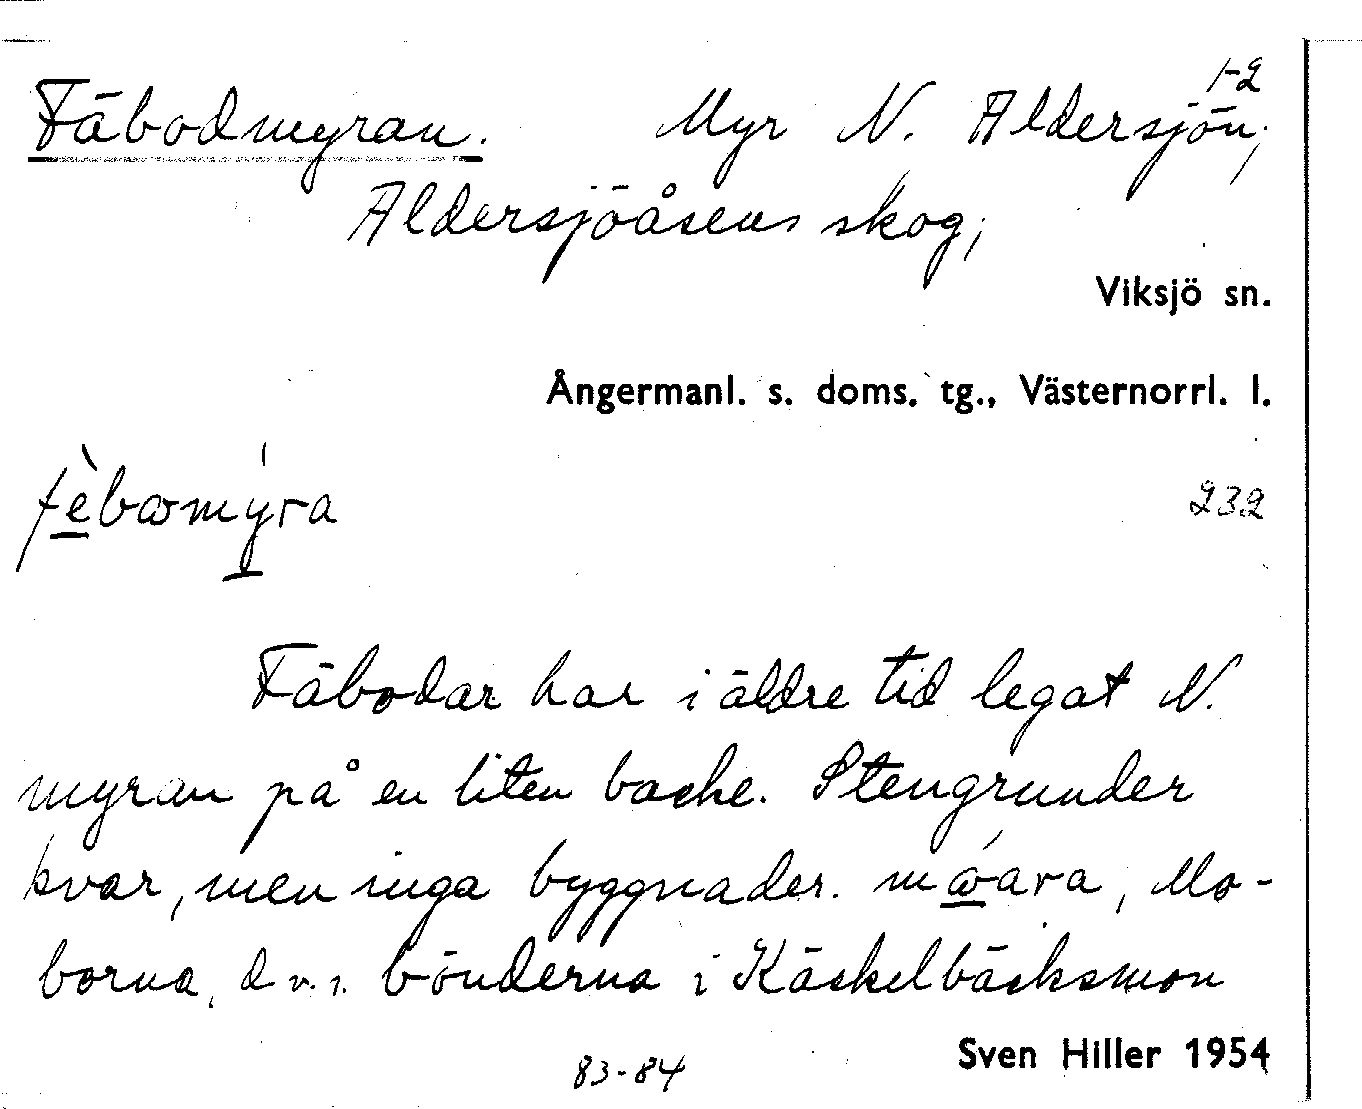 1-2
Fäbodmyran. Myr N. Aldersjön,
Aldersjöåsens skog;
Viksjö sn.
Ångermanl. s. doms. tg., Västernorrl. l.
232
Fäbodar har i äldre tid legat N.
myran på en liten backe. Stengrunder
kvar, men inga byggnader. , Mo-
borna, d.v.s. bönderna i Käckelbäcksmon
83-84
Sven Hiller 1954